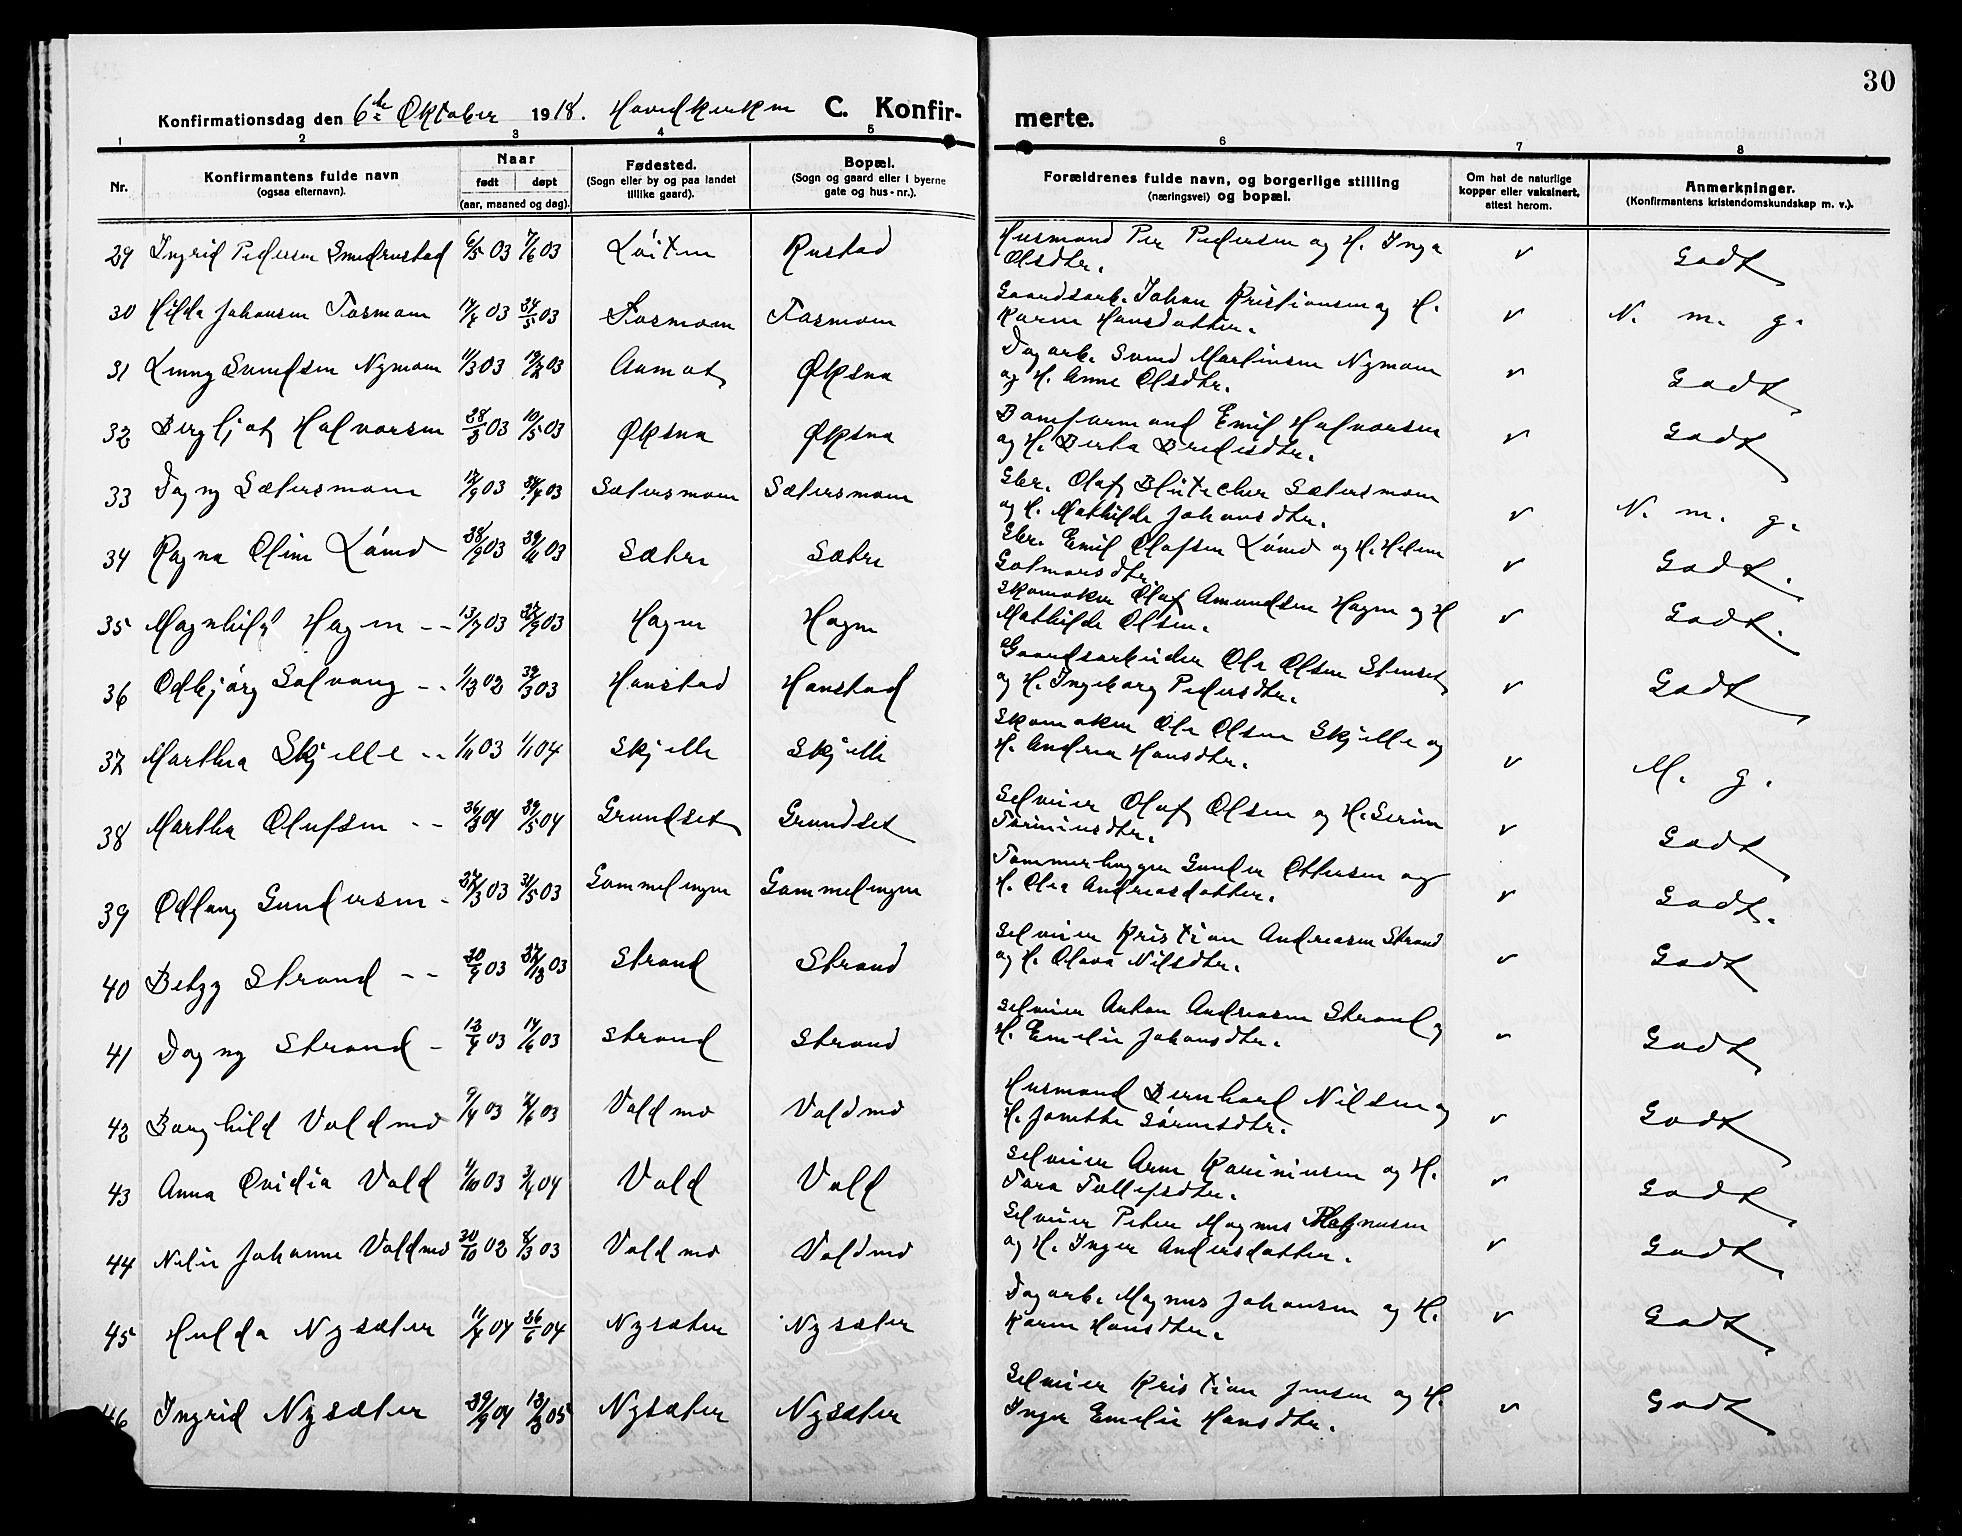 30
Konfirmationsdag den 6te Oktober 1918. Hovedkirken C. Konfir-
merte.
1 2 3 4 5 6 7 8
Nr.
Konfirmantens fulde navn
(ogsaa efternavn).
Naar
født døpt
(aar, maaned og dag).
Fødested.
(Sogn eller by og paa landet
tillike gaard).
Bopæl.
(Sogn og gaard eller i byerne
gate og hus-nr.).
Forældrenes fulde navn, og borgerlige stilling
(næringsvei) og bopæl.
Om hat de naturlige
kopper eller vaksinert,
attest herom.
Anmerkninger.
(Konfirmantens kristendomskundskap m. v.).
29 Ingrid Pedersen Smedrustad 6/5 03 7/6 03 Löiten Rustad Husmand Per Pedersen og H. Inga
Olsdtr. v Godt
30 Hilda Johansen Fosmoen 03 24/5 03 Fosmoen Fosmoen Gaardsarb. Johan Kristiansen og H.
Karen Hansdatter. v N. m. g.
31 Svendsen Nymoen 11/3 03 03 Aamot Øksna Dagarb. Svend Martinsen Nymoen
og H. Anne Olsdtr. v Godt
32 Bergljot Halvorsen 28/3 03 10/5 03 Øksna Øksna Banformand Emil Halvorsen
og H. Berta v Godt
33 Dagny Sætersmoen 03 03 Sætersmoen Sætersmoen Gbr. Olaf Blütecher Sætersmoen
og H. Mathilde Johansdtr. v N. m. g.
34 Ragna Oline Lömo 28/9 03 29/11 03 Sætre Sætre Gbr. Emil Olafsen Lömo og H. Helene
v Godt.
35 Magnhild Hagen -- 13/7 03 27/9 03 Hagen Hagen Skomaker Olaf Amundsen Hagen og H
Mathilde Olsen. v Godt.
36 Odbjörg Solvang -- 1/12 02 03 Hanstad Hanstad Gaardsarbeider Ole Olsen Stenset
og H. Ingeborg Pedersdtr. v Godt
37 Martha Skjelle -- 1/11 03 1/1 04 Skjelle Skjelle Skomaker Ole Olsen Skjelle og
H. Andrea Hansdtr. v M. g.
38 Martha Olufsen -- 26/3 04 29/5 04 Grundset Grundset Selveier Oluf Olsen og H. Serine
v Godt
39 Odlaug Gundersen - 27/3 03 31/5 03 Gammelengen Gammelengen Tømmerhugger Gunder Ottersen og
H. Olea Andreasdatter. v Godt.
40 Betzy Strand -- 03 27/12 03 Strand Strand Selveier Kristian Andreasen Strand
og H. Olava Nilsdtr. v Godt
41 Dagny Strand - 03 14/6 03 Strand Strand Selveier Anton Andreasen Strand og
H. Emelie Johansdtr. v Godt
42 Borghild Voldmo 9/4 03 03 Voldmo Voldmo Husmand Bernhard Nilsen og
H. Jonette Sörensdtr. v Godt
43 Anna Ovidia Vold 4/10 03 3/4 04 Vold Vold Selveier Arne Kariniusen og H.
Tora Tollefsdtr. v Godt
44 Nelie Johanne Voldmo 20/10 02 8/3 03 Voldmo Voldmo Selveier Peter Magnus Magnusen
og H. Inger Andersdatter. v Godt
45 Hulda Nysæter 11/4 04 26/6 04 Nysæter Nysæter Dagarb. Magnus Johansen og H.
Karen Hansdtr. v Godt
46 Ingrid Nysæter 29/9 04 05 Nysæter Nysæter Selveier Kristian Jensen og H.
Inger Emelie Hansdtr. v Godt